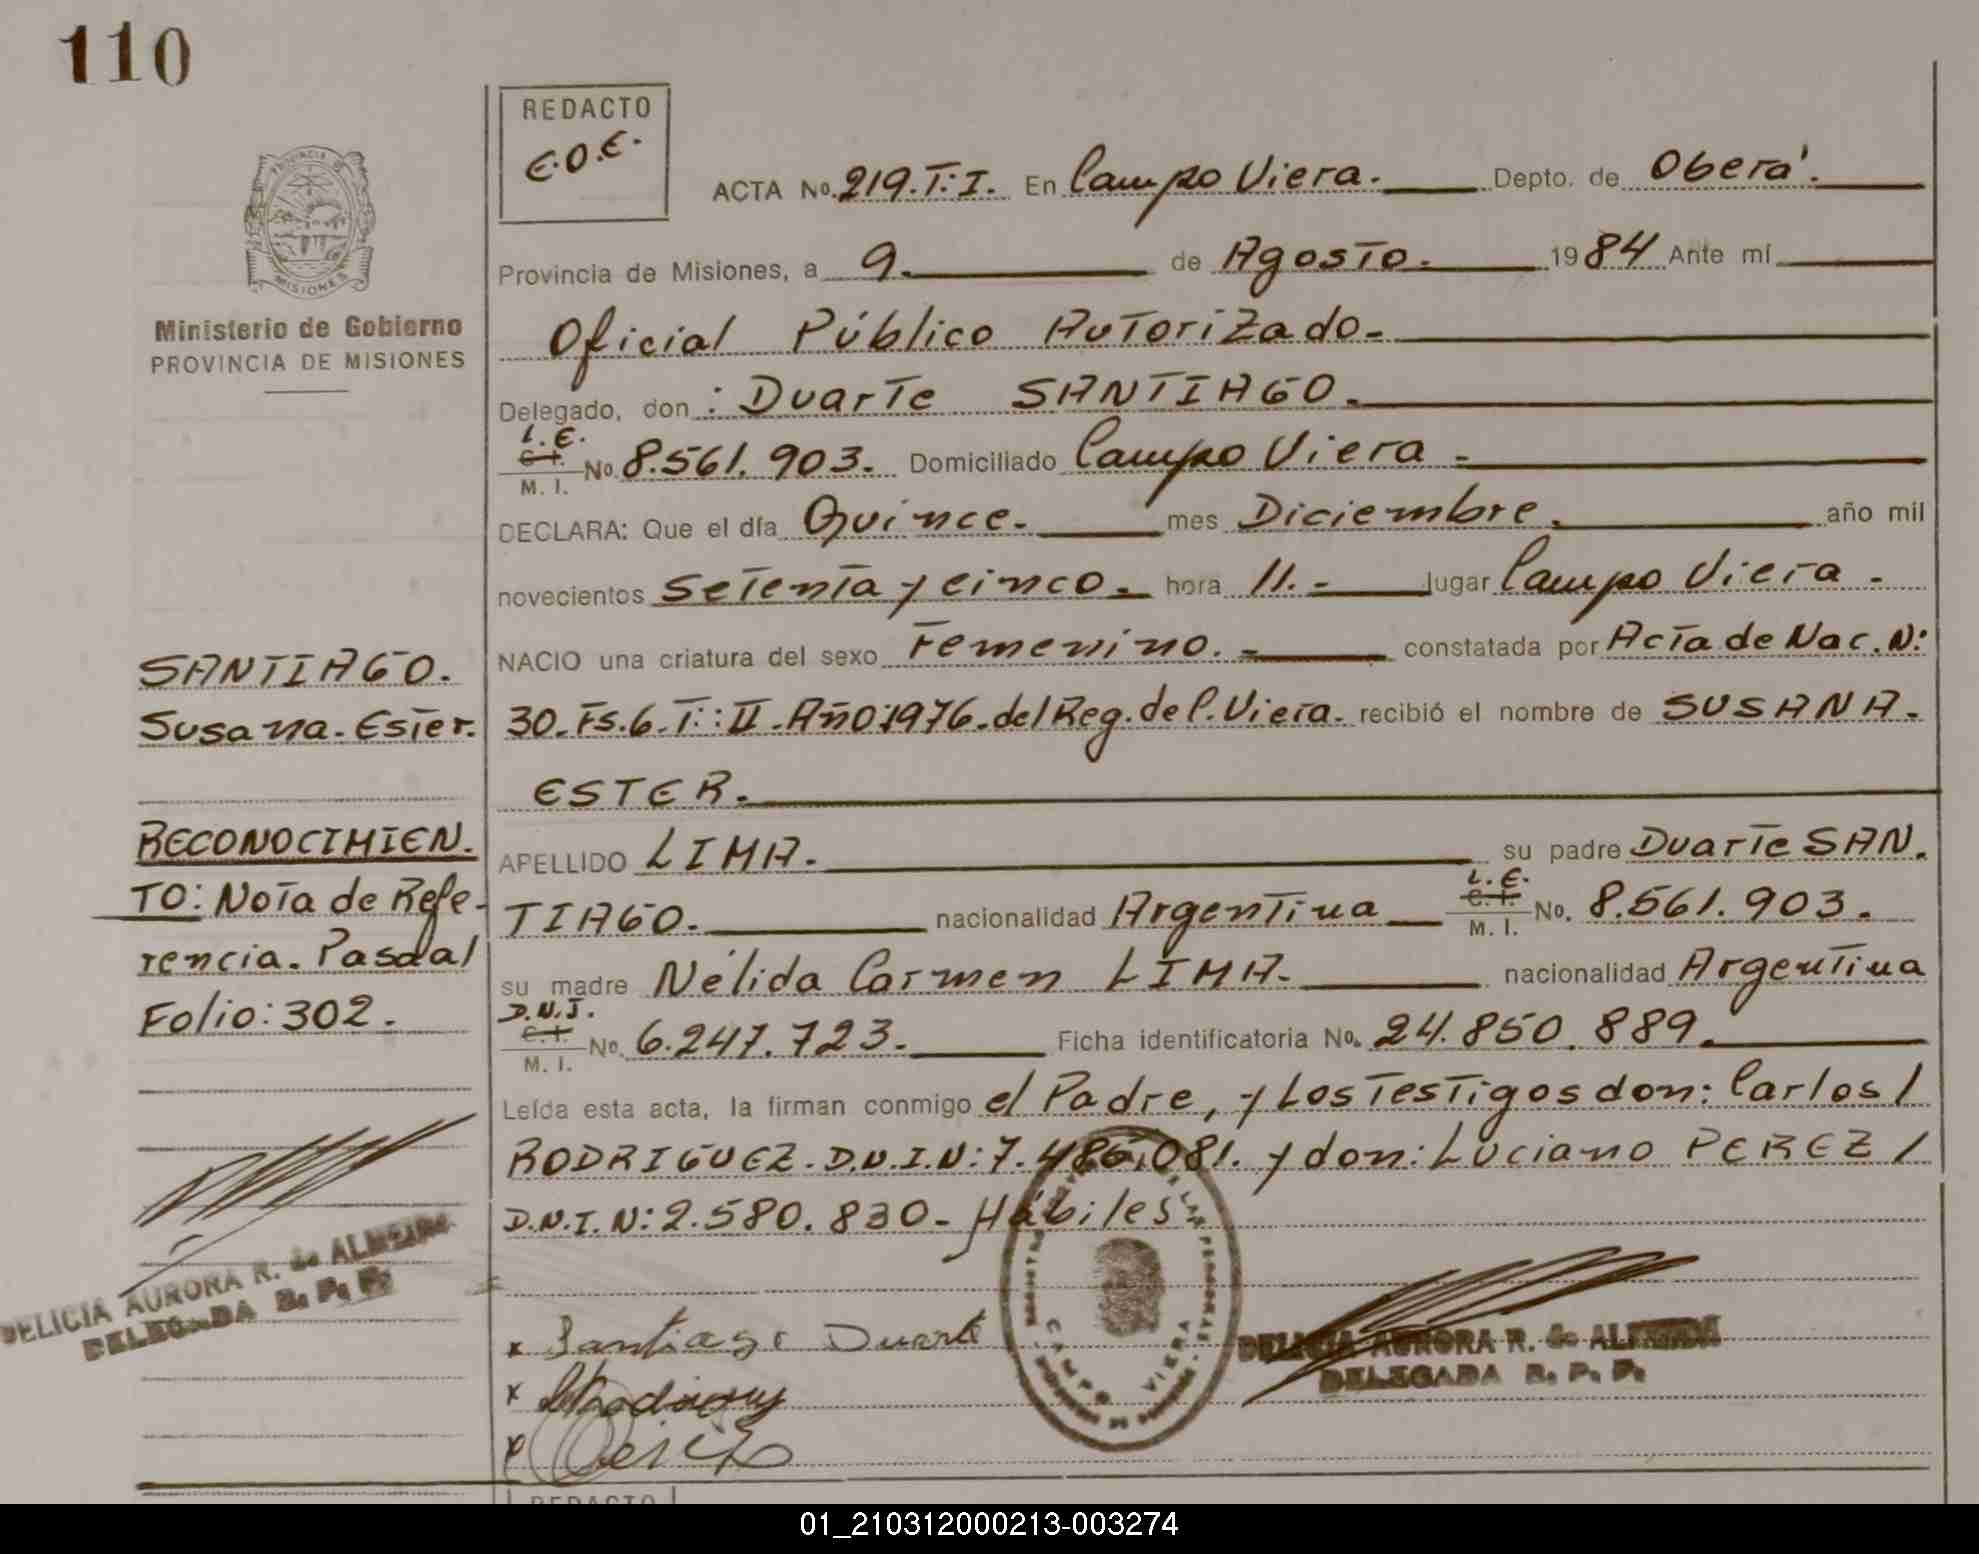 110
REDACTO
E.O.E.
ACTA No. 219.T:I. En Campo Viera. Depto. de Oberá.
Provincia de Misiones, a 9. de Agosto. 1984 Ante mí
Oficial Público Autorizado-
Delegado, don: Duarte SANTIAGO.
L.E.
C.I.
M. I. No. 8.561.903. Domiciliado Campo Viera -
DECLARA: Que el día Quince. mes Diciembre. año mil
novecientos Setenta y cinco. hora 11.- lugar Campo Viera -
NACIO una criatura del sexo Femenino. - constatada por Acta de Nac. N:
30. Fs.6.T::II. Año:1976. del Reg. de C. Viera. recibió el nombre de SUSANA.
ESTER.
APELLIDO LIMA. su padre Duarte SAN.
TIAGO. nacionalidad Argentina L.E. C.I. M. I. No. 8.561.903.
su madre Nélida Carmen LIMA. nacionalidad Argentina
D.N.I.
C.I.
M. I. No. 6.247.723. Ficha identificatoria No. 24.850.889.
Leída esta acta, la firman conmigo el Padre, y Los Testigos don: Carlos/
RODRIGUEZ. D.N.I.N: 7.486.081. y don: Luciano PEREZ/
D.N.I.N: 2.580.830- Hábiles-
x Santiago Duarte
x
x
PROVINCIA DE
MISIONES
Ministerio de Gobierno
PROVINCIA DE MISIONES
SANTIAGO.
Susana. Ester.
RECONOCIMIEN.
TO: Nota de Refe-
rencia. Pasa al
Folio: 302.
DELICIA AURORA R. de ALMEIDA
DELEGADA R. P. P.
CAMPO VIERA
DELICIA AURORA R. de ALMEIDA
DELEGADA R. P. P.
REDACTO
01_210312000213-003274